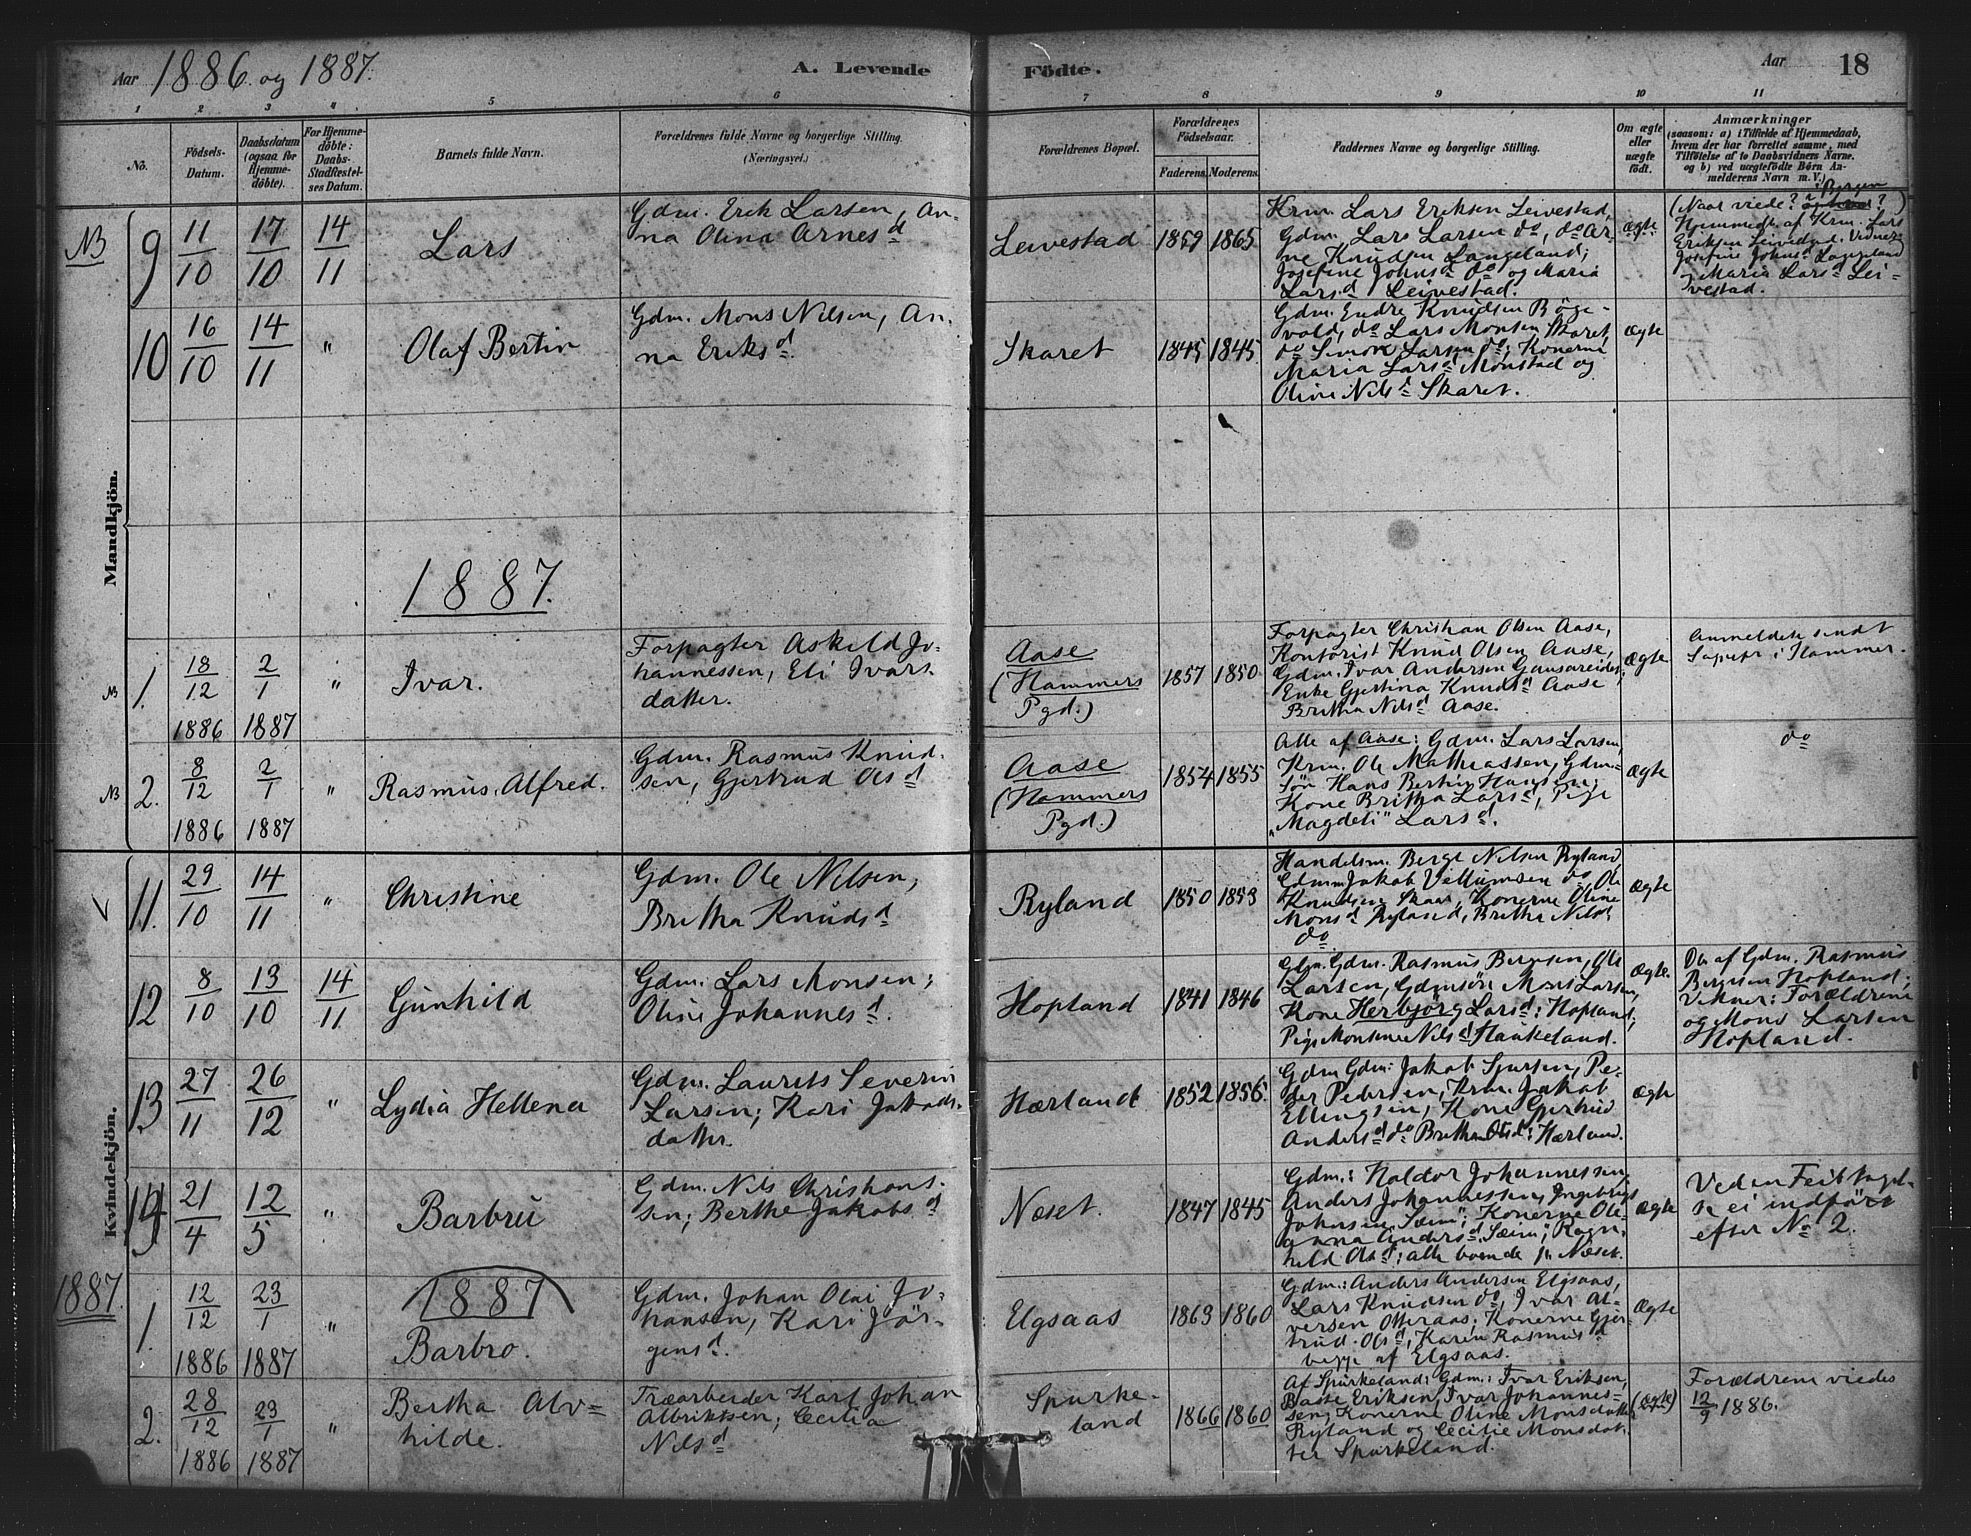 Aar 1886 og 1887.
A. Levende Födte.
Aar
18
1 2 3 " 5 6 7 8 9 10 11
No.
Födsels-Datum.
Daabsdatum (ogsaa for Hjemme-döbte).
For Hjemme-döbte: Daabs-Stadfæstel-ses Datum.
Barnets fulde Navn.
Forældrenes fulde Navne og borgerlige Stilling.
(Næringsvei.)
Forældrenes Bopæl.
Forældrenes Födselsaar.
Faderens. Moderens.
Faddernes Navne og borgerlige Stilling.
Om ægte eller uægte født.
Anmærkninger
(saasom: a) i Tilfælde af Hjemmedaab,
hvem der har forrettet samme, med
Tilföielse af to Daabsvidners Navne.
og b) ved uægtefödte Börn An-
melderens Navn m. V.)
Mandkjön.
NB 9 11/10 17/10 14/11 Lars
Gdm. Erik Larsen, An-
na Olina Arnesd
Leivestad 1859 1865
Krm. Lars Eriksen Leivestad,
Gdm. Lars Larsen do, do Ar-
ne Knudsen Langeland;
Josefine Johnsd do og Maria
Larsd Leivestad.
ægte
(Naar viede? i Bergen?)
Hjemmedt. af Krm. Lars
Eriksen Leivestad. Vidner:
Josefine Johnsd Langeland
og Maria Larsd Lei-
vestad.
10 16/10 14/11 " Olaf Bertin
Gdm. Mons Nilsen, An-
na Eriksd.
Skaret 1845 1845
Gdm. Endre Knudsen Böge-
vold, do Lars Monsen Skaret,
do Simon Larsen do; Konerne
Maria Larsd Monstad og
Oline Nilsd Skaret.
ægte
1887.
NB 1. 18/12 1886 2/1 1887 " Ivar.
Forpagter Askild Jo-
hannessen, Eli Ivars-
datter.
Aase
(Hammers
Pgd.)
1857 1850
Forpagter Christian Olsen Aase,
Kontorist Knud Olsen Aase,
Gdm. Ivar Andersen Gaasareidet,
Enke Gjertina Knudsd Aase
Britha Nilsd Aase.
Ægte
Anmeldelse sendt
Sogepr i Hammer.
NB 2. 8/12 1886 2/1 1887 " Rasmus Alfred.
Gdm. Rasmus Knud-
sen, Gjertrud Olsd
Aase
(Hammers
Pgd.)
1854 1855
Alle af Aase: Gdm. Lars Larsen,
Krm. Ole Mathiassen, Gdm-
sön Hans Bertin Hansen;
Kone Britha Larsd, Pige
"Magdeli" Larsd.
Ægte
do
Kvindekjön.
V 11. 29/10 14/11 " Christine
Gdm. Ole Nilsen,
Britha Knudsd
Ryland 1850 1853
Handelsm. Berge Nilsen Ryland
Gdmm Jakob Villumsen do, Ole
Knudsen Skaar, Konerne Oline
Monsd Ryland, Britha Nilsd
do
Ægte
12 8/10 13/10 14/11 Gunhild
Gdm. Lars Monsen;
Oline Johannesd.
Hopland 1841 1846
Gdm. Rasmus Bergesen, Ole
Larsen, Gdmsön Mons Larsen,
Kone Herbjörg Larsd: Hopland;
Pige Monsine Nilsd Haukeland.
Ægte.
Do af Gdm. Rasmus
Bergesen Hopland;
Vidner: Forældrene
og Mons Larsen
Hopland.
13 27/11 26/12 " Lydia Hellena
Gdm. Laurits Severin
Larsen; Kari Jakobs-
datter.
Hærland 1852 1856.
Gdm Gdm: Jakob Sjursen, Pe-
der Pedersen, Krm. Jakob
Ellingsen, Kone Gjertrud
Andersd do Britha Olsd: Hærland.
Ægte
14 21/4 12/5 " Barbru
Gdm. Nils Christians-
sen; Berthe Jakobsd
Næset. 1847 1845
Gdm: Haldor Johannessen,
Anders Johannessen, Ingebrigt
Johnsen Sæim; Konerne Oli-
anna Andersd Sæim; Ragn-
hild Olsd; alle boende p. Næset.
Ægte
Ved en Feiltagel-
se ei indfört
efter No 2.
1887.
1887
1. 12/12 1886 23/1 1887 " Barbro.
Gdm. Johan Olai Jo-
hansen, Kari Jör-
gensd.
Elgsaas 1863 1860
Gdm.: Anders Andersen Elgsaas,
Lars Knudsen do, Ivar Al-
versen Otteraas; Konerne Gjer-
trud Olsd, Karen Rasmusd
begge af Elgsaas.
Ægte
2. 28/12 1886 23/1 1887 " Bertha Alv=
hilde.
Træarbeider Karl Johan
Albriktsen; Cecilia
Nilsd
Spurke-
land
1866 1860
Af Spurkeland: Gdm.: Ivar Eriksen,
Baste Eriksen, Ivar Johannes-
sen, Konerne Oline Monsdatter
Ryland og Cecilie Monsdat-
ter Spurkeland.
(ægte)
Forældrene viedes
12/9 1886.